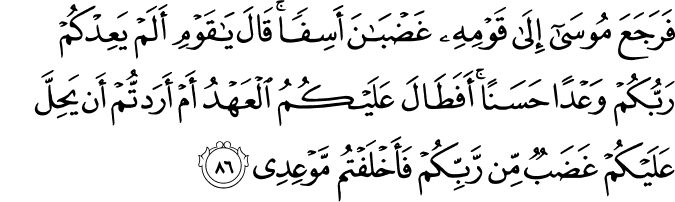 فَرَجَعَ مُوسَىٰٓ إِلَىٰ قَوْمِهِۦ غَضْبَـٰنَ أَسِفًا ۚ قَالَ يَـٰقَوْمِ أَلَمْ يَعِدْكُمْ
رَبُّكُمْ وَعْدًا حَسَنًا ۚ أَفَطَالَ عَلَيْكُمُ ٱلْعَهْدُ أَمْ أَرَدتُّمْ أَن يَحِلَّ
عَلَيْكُمْ غَضَبٌ مِّن رَّبِّكُمْ فَأَخْلَفْتُم مَّوْعِدِى ٨٦